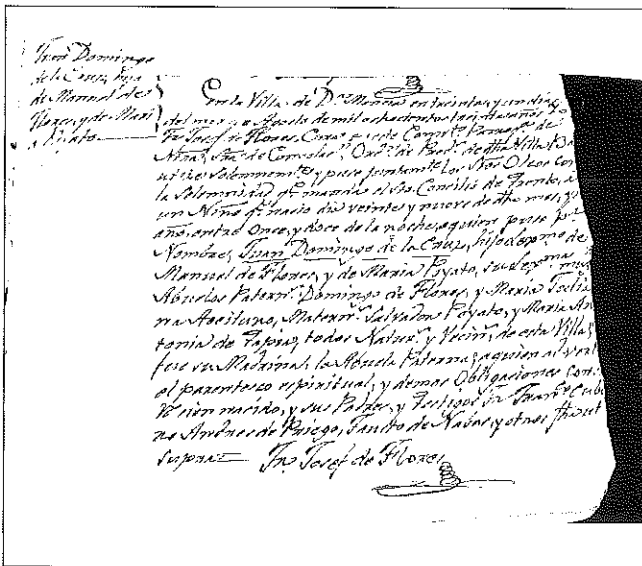 Juan Domingo
de la Cruz, hijo
de Manuel de
Flores, y de Mari
a Poyato
En la Villa de D.ª Mencia en treinta, y un dias
del mes de Agosto de mil ochocientos seis años Yo
Fr. Josef de Flores, Cura de este Comv.to Parroq.l de
Ntra. Sra. de Consolac.n Ord.n de Pred.s de dha Villa Ba
utize Solemnem.te, y puse juntam.te los Stos Oleos con
la Solemnidad q.e manda el Sto Concilio de Trento, a
un Niño q.e nacio dia veinte y nueve de dho mes, y
año, entre Once, y doce de la noche, aquien puse p.r
Nombre, Juan Domingo de la Cruz, hijo legmo de
Manuel de Flores, y de Maria Poyato, su legma mu
Abuelos Patern.s Domingo de Flores, y Maria
na Aceituno, Matern.s Salvador Poyato, y Maria An
tonia de Tapia, todos Natur.s y Vecin.s de esta Villa,
fue su Madrina, la Abuela Paterna, aquien
el parentesco espiritual, y demas Obligaciones con
recien nacido, y sus Padres, y Testigos
Andres de Priego, de y otros fho ut
Supra=
Fr. Josef de Flores